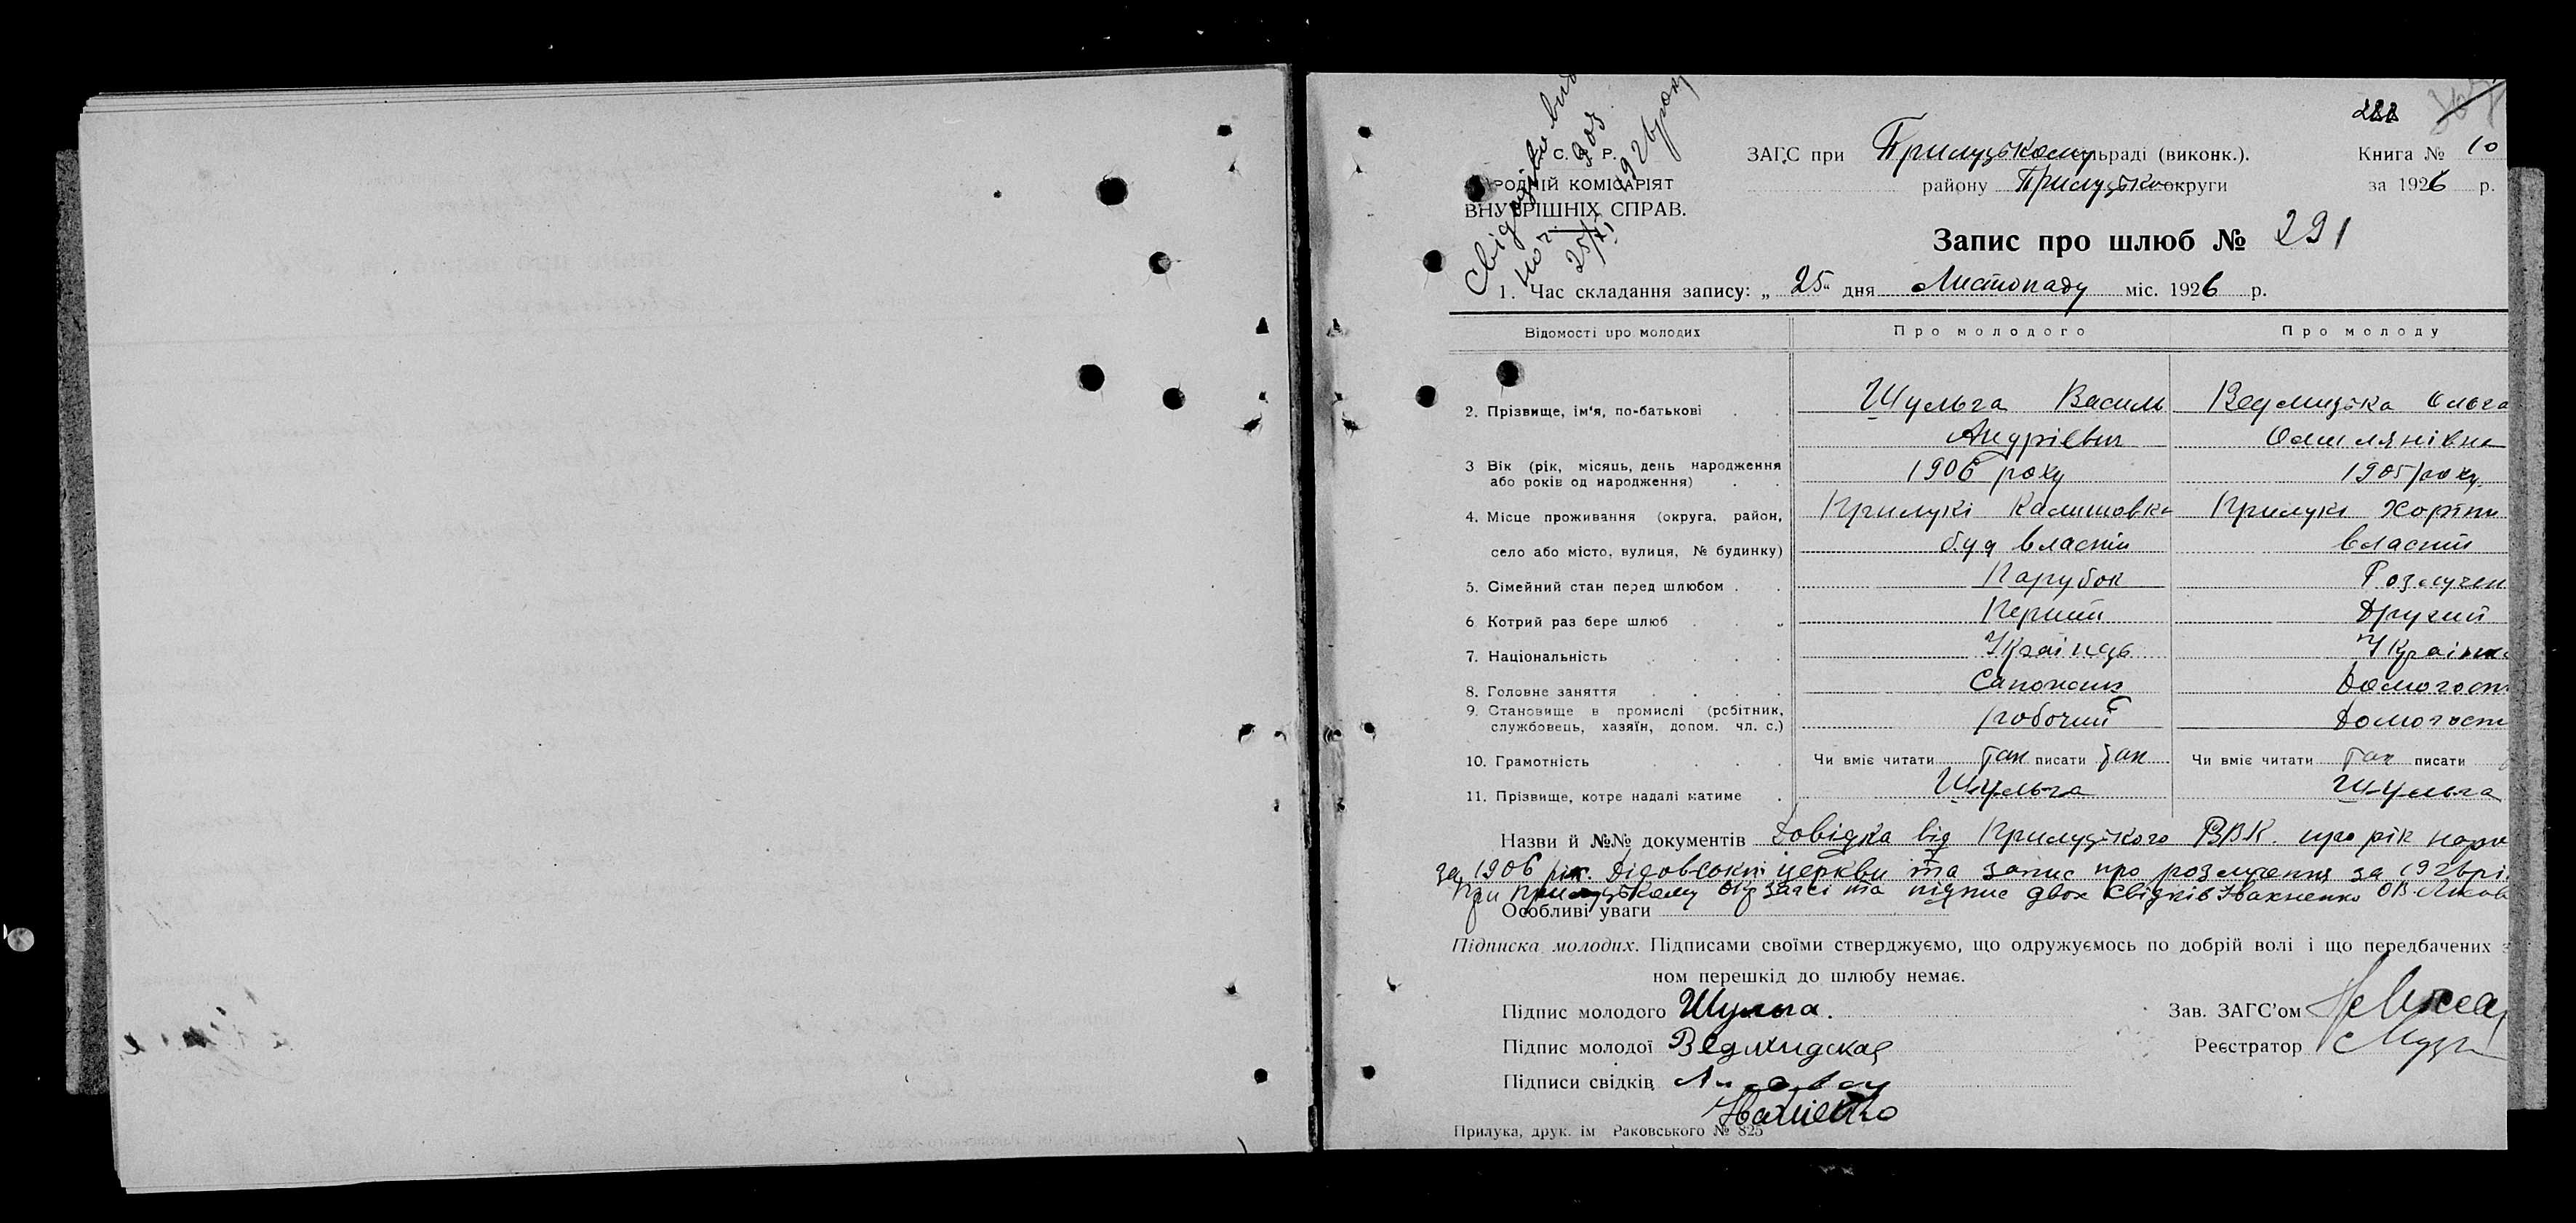 288
С. Р.
РОДНІЙ КОМІСАРІЯТ
ВНУТРІШНІХ СПРАВ.
Свідоцтво вид
903
25/XI 1926 року
ЗАГС при Прилуцькому льраді (виконк.).
району Прилуцько округи
Книга № 10
за 1926 р.
Запис про шлюб № 291
1. Час складання запису: „ 25 " дня Листопаду міс. 1926 р.
Відомості про молодих Про молодого Про молоду
2. Прізвище, ім'я, по-батькові Шульга Василь Ведмицька Ольга
Андрієвич
3 Вік (рік, місяць, день народження 1906 року 1905 року
або років од народження)
4. Місце проживання (округа, район, Прилукі Калишовка Прилукі
село або місто, вулиця, № будинку) буд власний власний
5. Сімейний стан перед шлюбом Парубок Розлучен
6 Котрий раз бере шлюб Перший Другий
7. Національність Українць Українка
8. Головне заняття Сапожник Домогосп
9. Становище в промислі (робітник, робочий Домогосп
службовець, хазяїн, допом. чл. с.)
10. Грамотність Чи вміє читати так писати так Чи вміє читати так писати
11. Прізвище, котре надалі матиме Шульга Шульга
Назви й №№ документів Довідка від Прилуцького РВК. про рік народ
за 1906 рік. церкви та запис про розлучення за 1926 рі
при Прилуцькому Окрзагсі та підпис двох свідків Івахненко
Особливі уваги
Підписка молодих. Підписами своїми стверджуємо, що одружуємось по добрій волі і що передбачених з
ном перешкід до шлюбу немає.
Підпис молодого Шульга.
Зав. ЗАГС'ом
Підпис молодої Ведмидская
Реєстратор
Підписи свідків
Прилука, друк. ім Раковського № 825